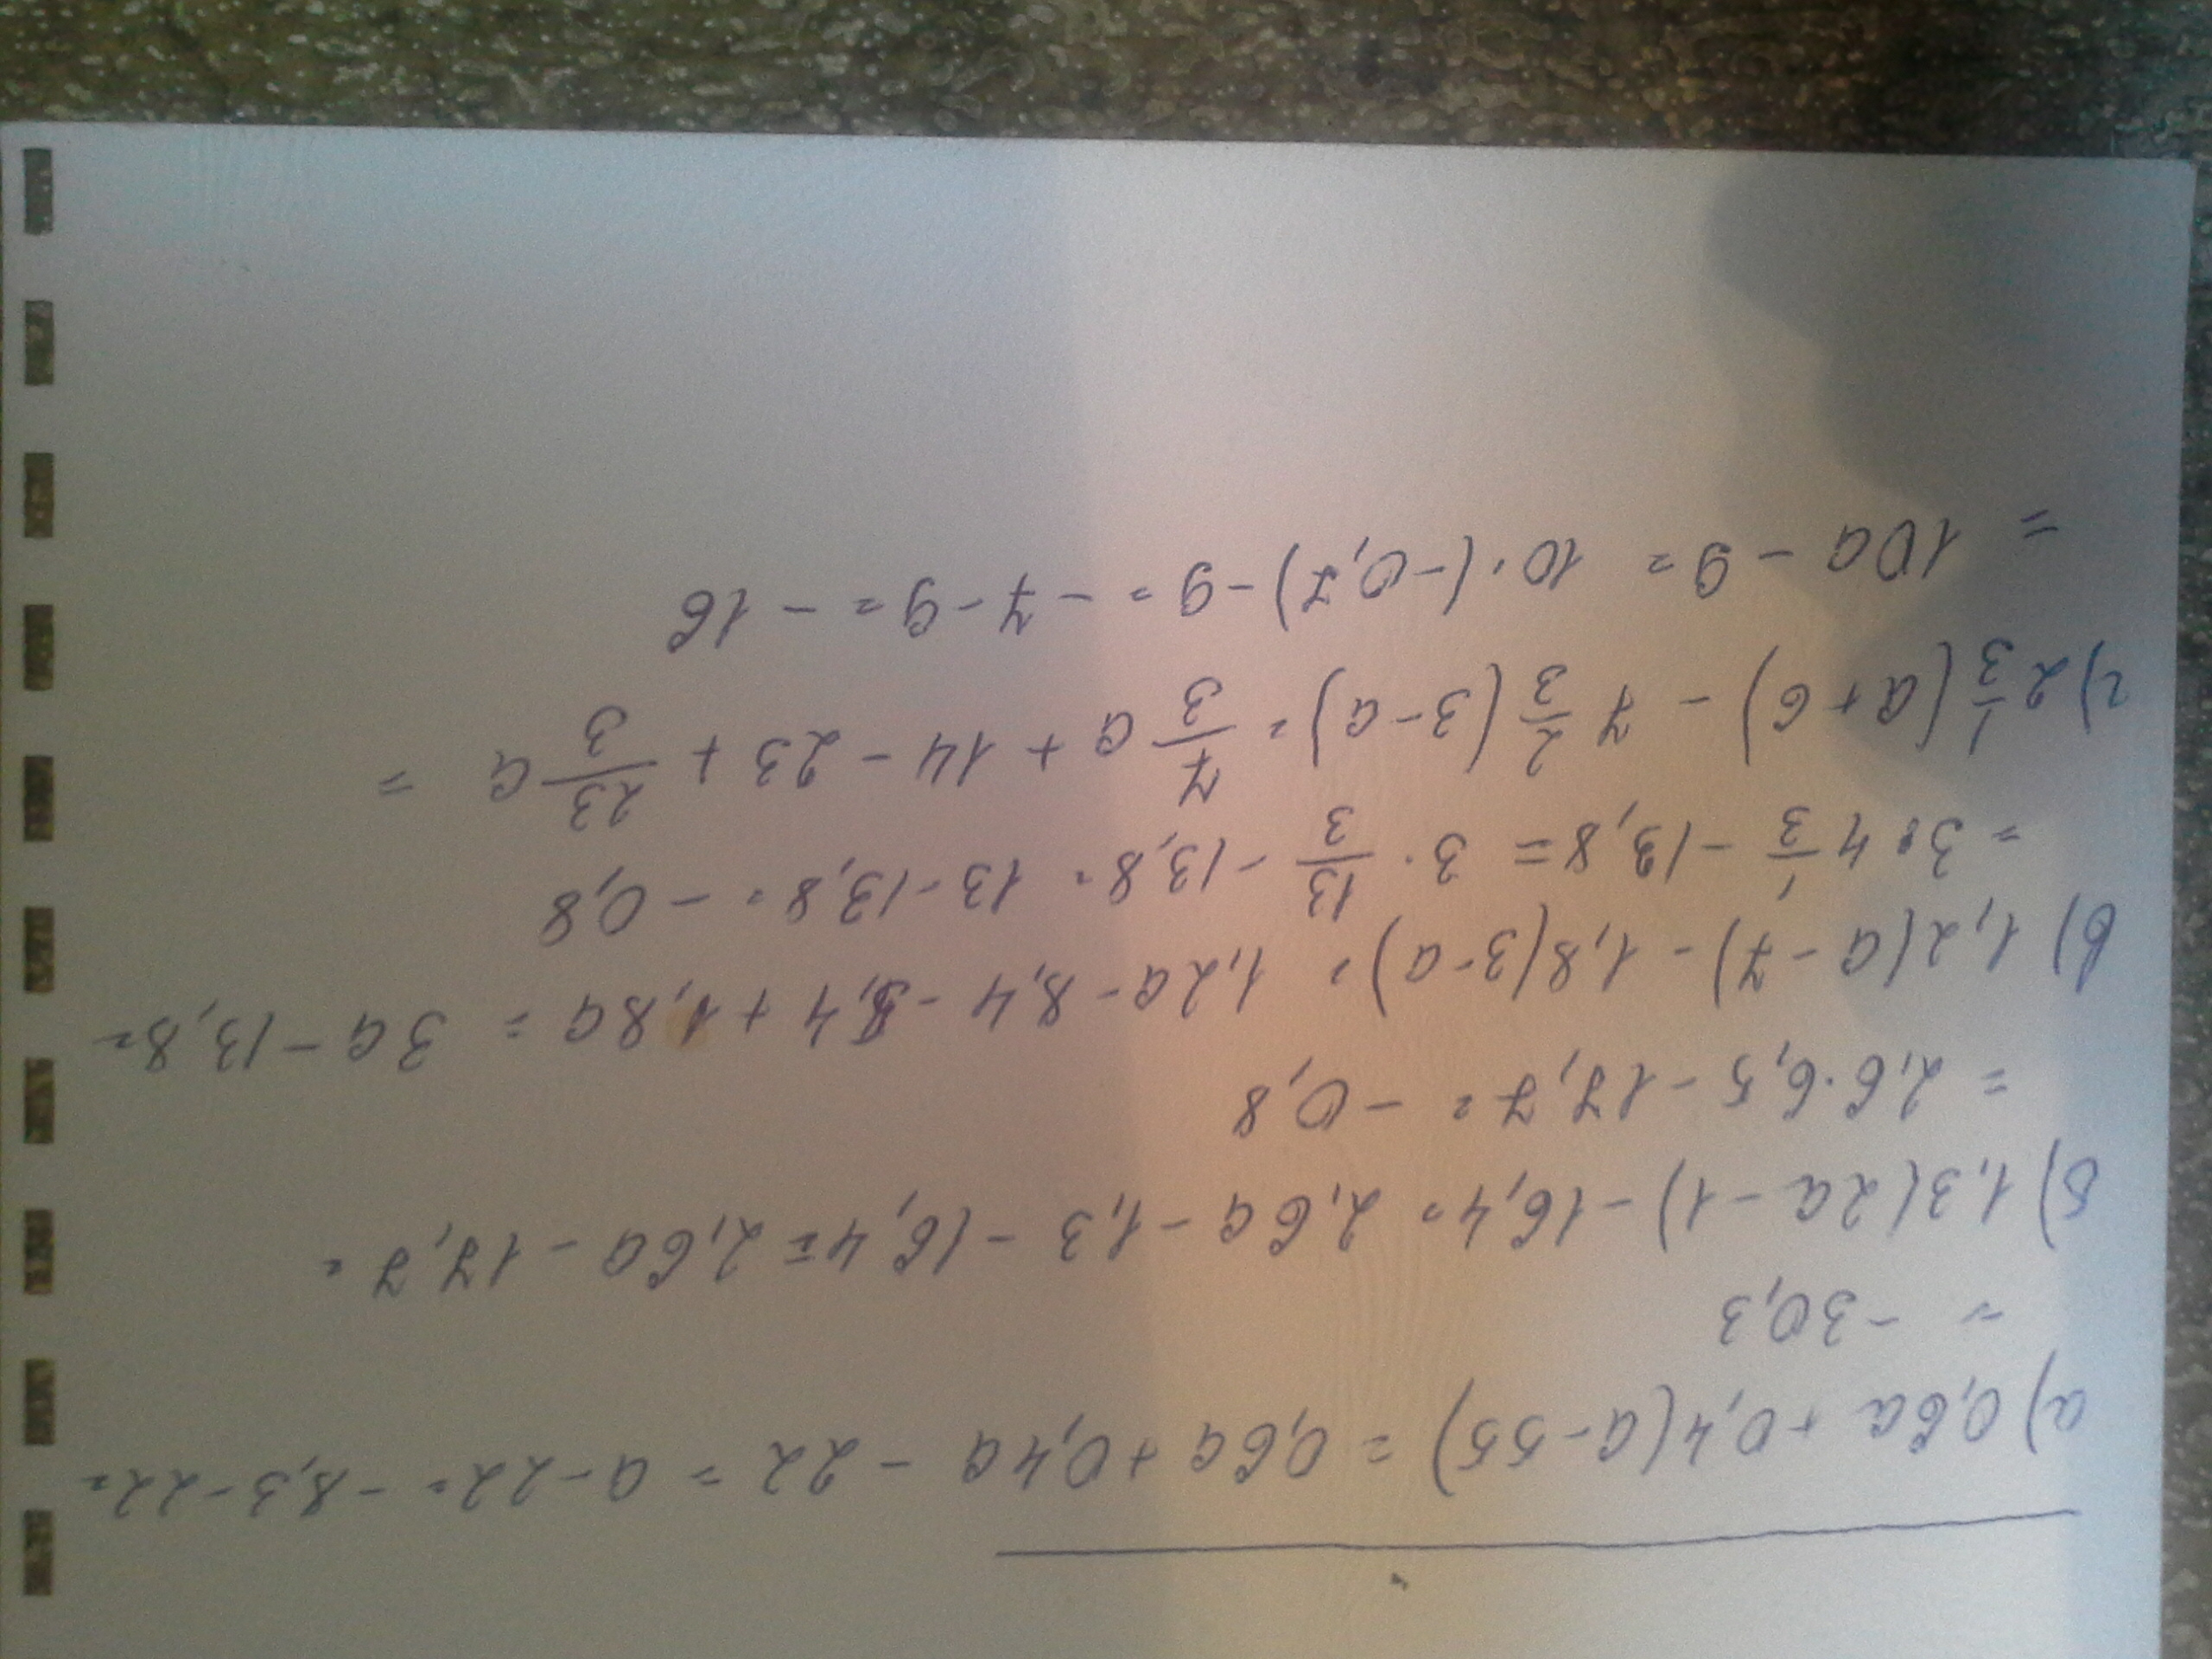 а) 0,6a + 0,4(a-55) = 0,6a + 0,4a - 22 = a-22 = -8,3-22=
= -30,3
б) 1,3(2a-1) - 16,4 = 2,6a - 1,3 - 16,4 = 2,6a - 17,7 =
= 2,6·6,5 - 17,7 = -0,8
в) 1,2(a-7) - 1,8(3-a) = 1,2a - 8,4 - 5,4 + 1,8a = 3a - 13,8 =
= 3·4 1/3 - 13,8 = 3·13/3 - 13,8 = 13-13,8 = -0,8
г) 2 1/3 (a+6) - 7 2/3 (3-a) = 7/3 a + 14 - 23 + 23/3 a =
= 10a - 9 = 10·(-0,7) - 9 = -7-9 = -16